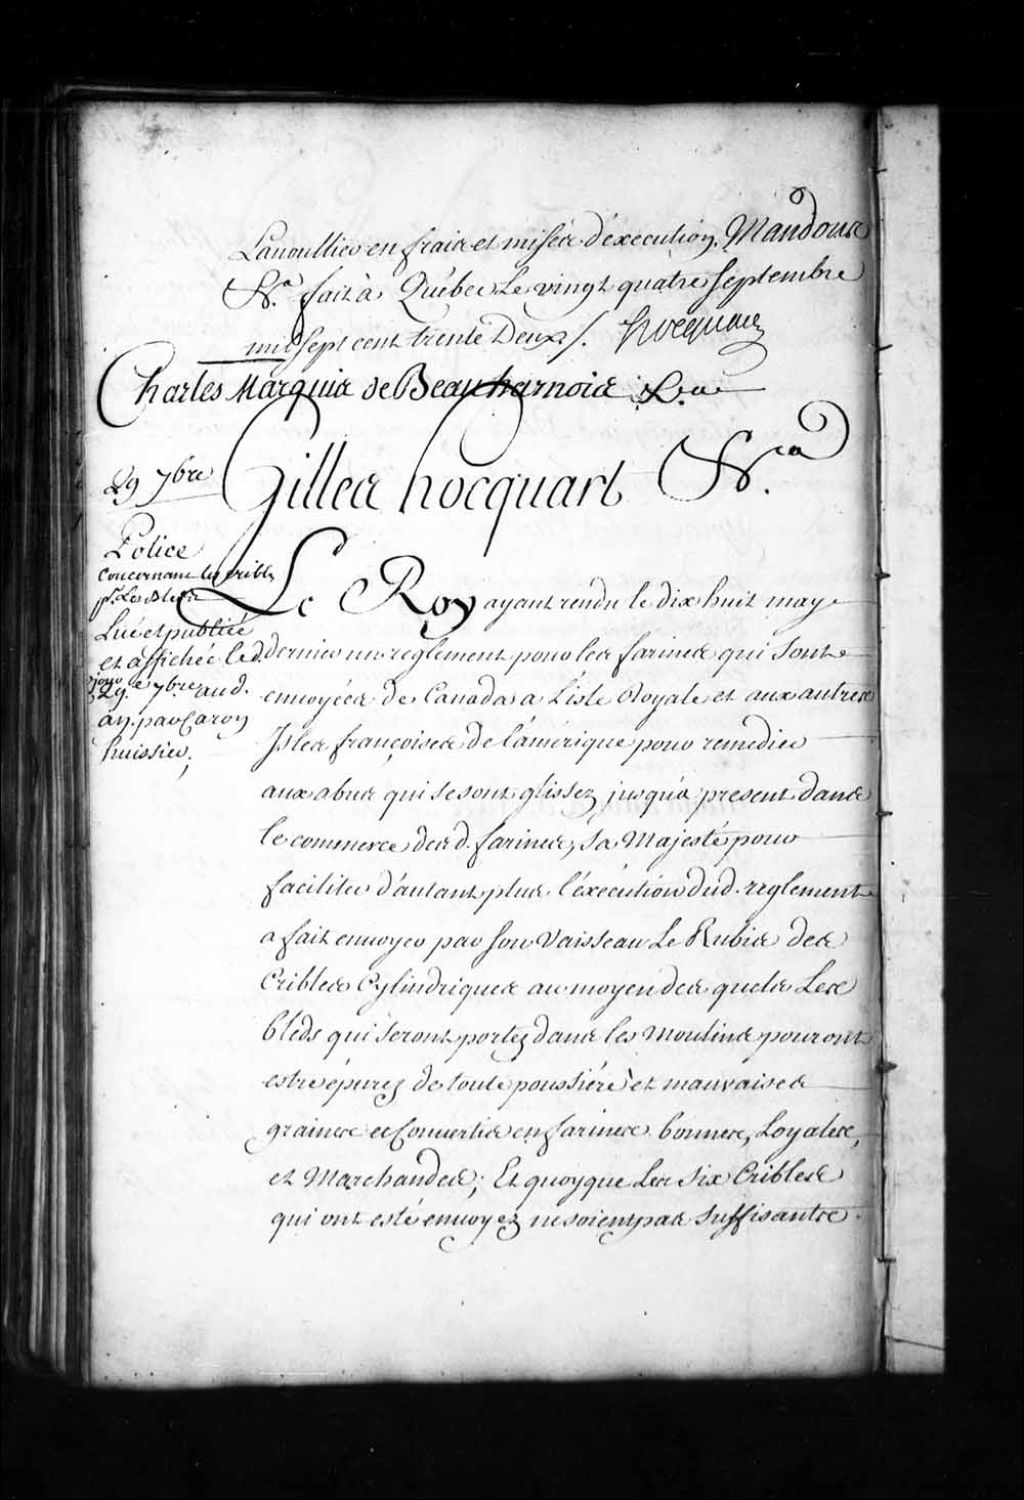 Lanoullier en frais et mises d'éxecution, Mandons
&c.a fait à Québec le vingt quatre septembre
mil sept cent trente Deux /. hocquart
Charles Marquis de Beauharnois &c.a
Gilles hocquart &c.a
29 7bre
Police
Concernant les cribles
pr. Les Bleds
Lüe et publiée
et affichée led.
jour 29.e 7bre aud.
an. par Caron
huissier,
Le Roy ayant rendu le dix huit may
dernier un reglement pour les farines qui sont
envoyées de Canada a L'isle Royale et aux autres
Isles françoises de l'amérique pour remedier
aux abus qui se sont glissez jusqu'a present dans
le commerce desd. farines, sa Majesté pour
faciliter d'autant plus l'éxécution dud. reglement
a fait envoyer par son Vaisseau Le Rubis des
Cribles Cylindriques au moyen des quels Les
bleds qui seront portez dans les Moulins pouront
estre épurez de toute poussiére et mauvaises
graines et Convertis en farines bonnes, Loyales,
et Marchandes; Et quoyque Les six Cribles
qui ont esté envoyez ne soient pas suffisants